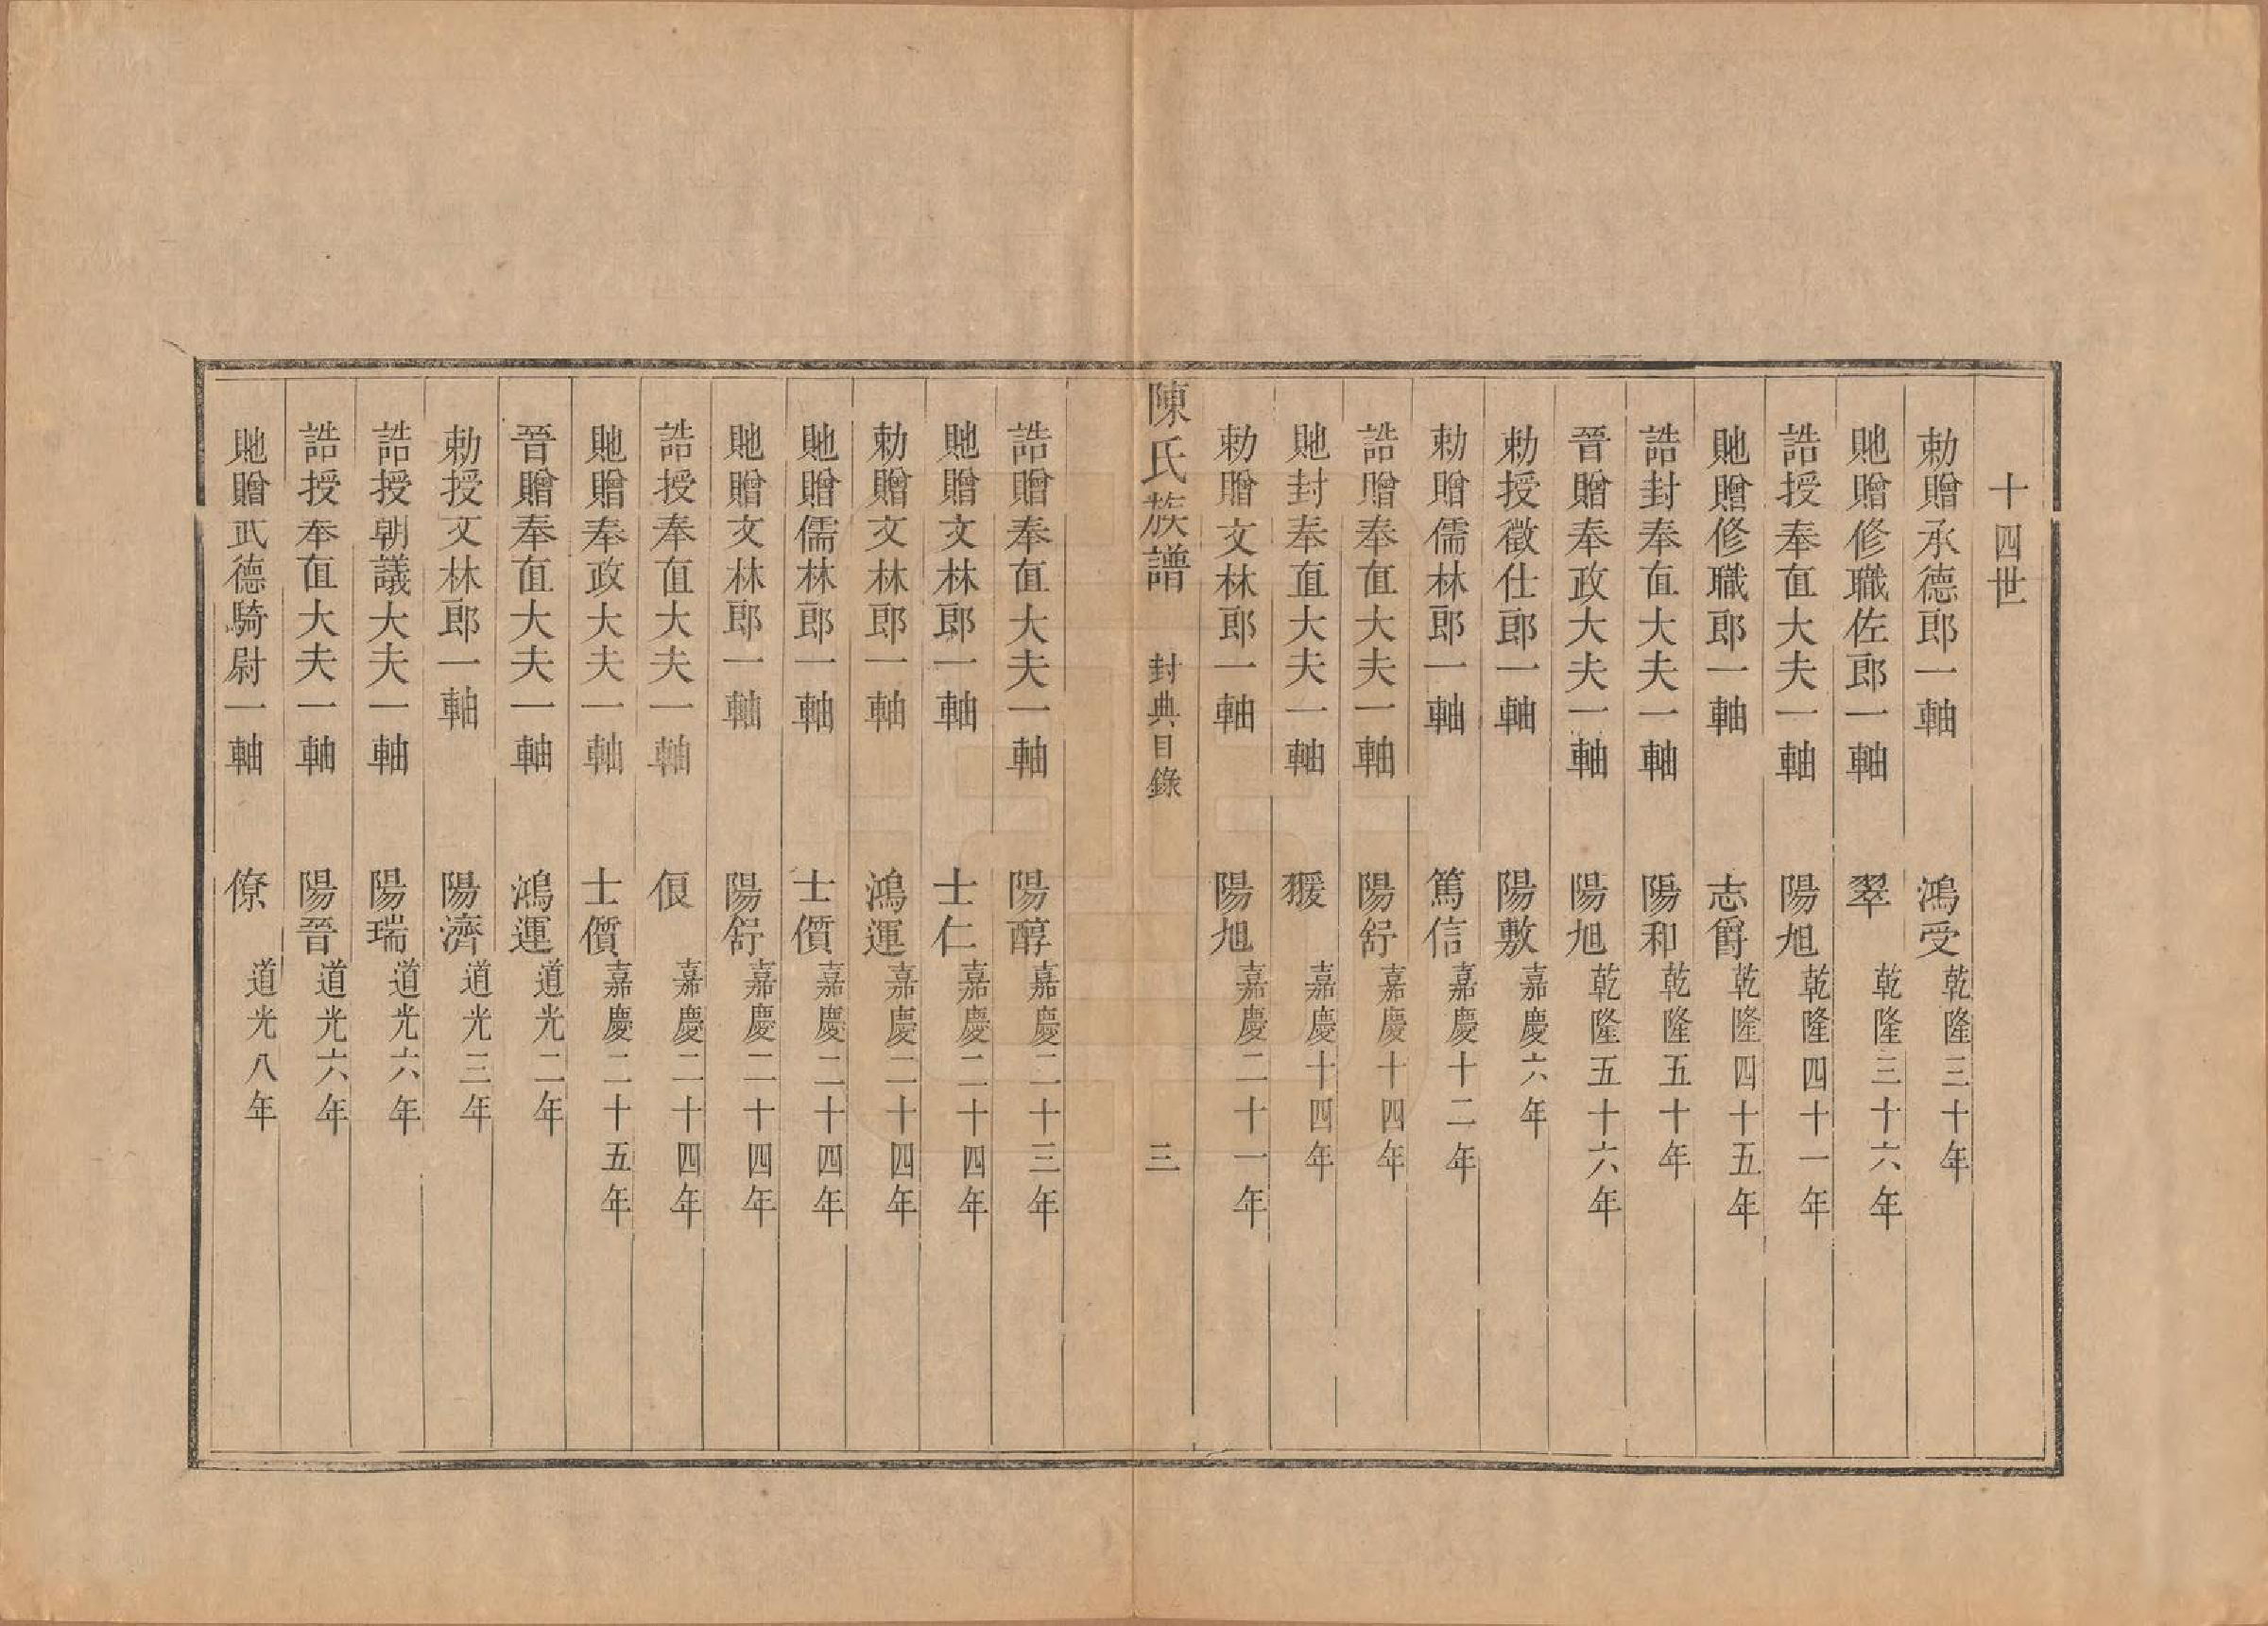 十四世
勅贈承德郎一軸 鴻受 乾隆三十年
貤贈修職佐郎一軸 翠 乾隆三十六年
誥授奉直大夫一軸 陽旭 乾隆四十一年
貤贈修職郎一軸 志爵 乾隆四十五年
誥封奉直大夫一軸 陽和 乾隆五十年
晉贈奉政大夫一軸 陽旭 乾隆五十六年
勅授徵仕郎一軸 陽敷 嘉慶六年
勅贈儒林郎一軸 篤信 嘉慶十二年
誥贈奉直大夫一軸 陽舒 嘉慶十四年
貤封奉直大夫一軸 猨 嘉慶十四年
勅贈文林郎一軸 陽旭 嘉慶二十一年
陳氏族譜 封典目錄 三
誥贈奉直大夫一軸 陽醇 嘉慶二十三年
貤贈文林郎一軸 士仁 嘉慶二十四年
勅贈文林郎一軸 鴻運 嘉慶二十四年
貤贈儒林郎一軸 士儥 嘉慶二十四年
貤贈文林郎一軸 陽舒 嘉慶二十四年
誥授奉直大夫一軸 佷 嘉慶二十四年
貤贈奉政大夫一軸 士儥 嘉慶二十五年
晉贈奉直大夫一軸 鴻運 道光二年
勅授文林郎一軸 陽濟 道光三年
誥授朝議大夫一軸 陽瑞 道光六年
誥授奉直大夫一軸 陽晉 道光六年
貤贈武德騎尉一軸 僚 道光八年